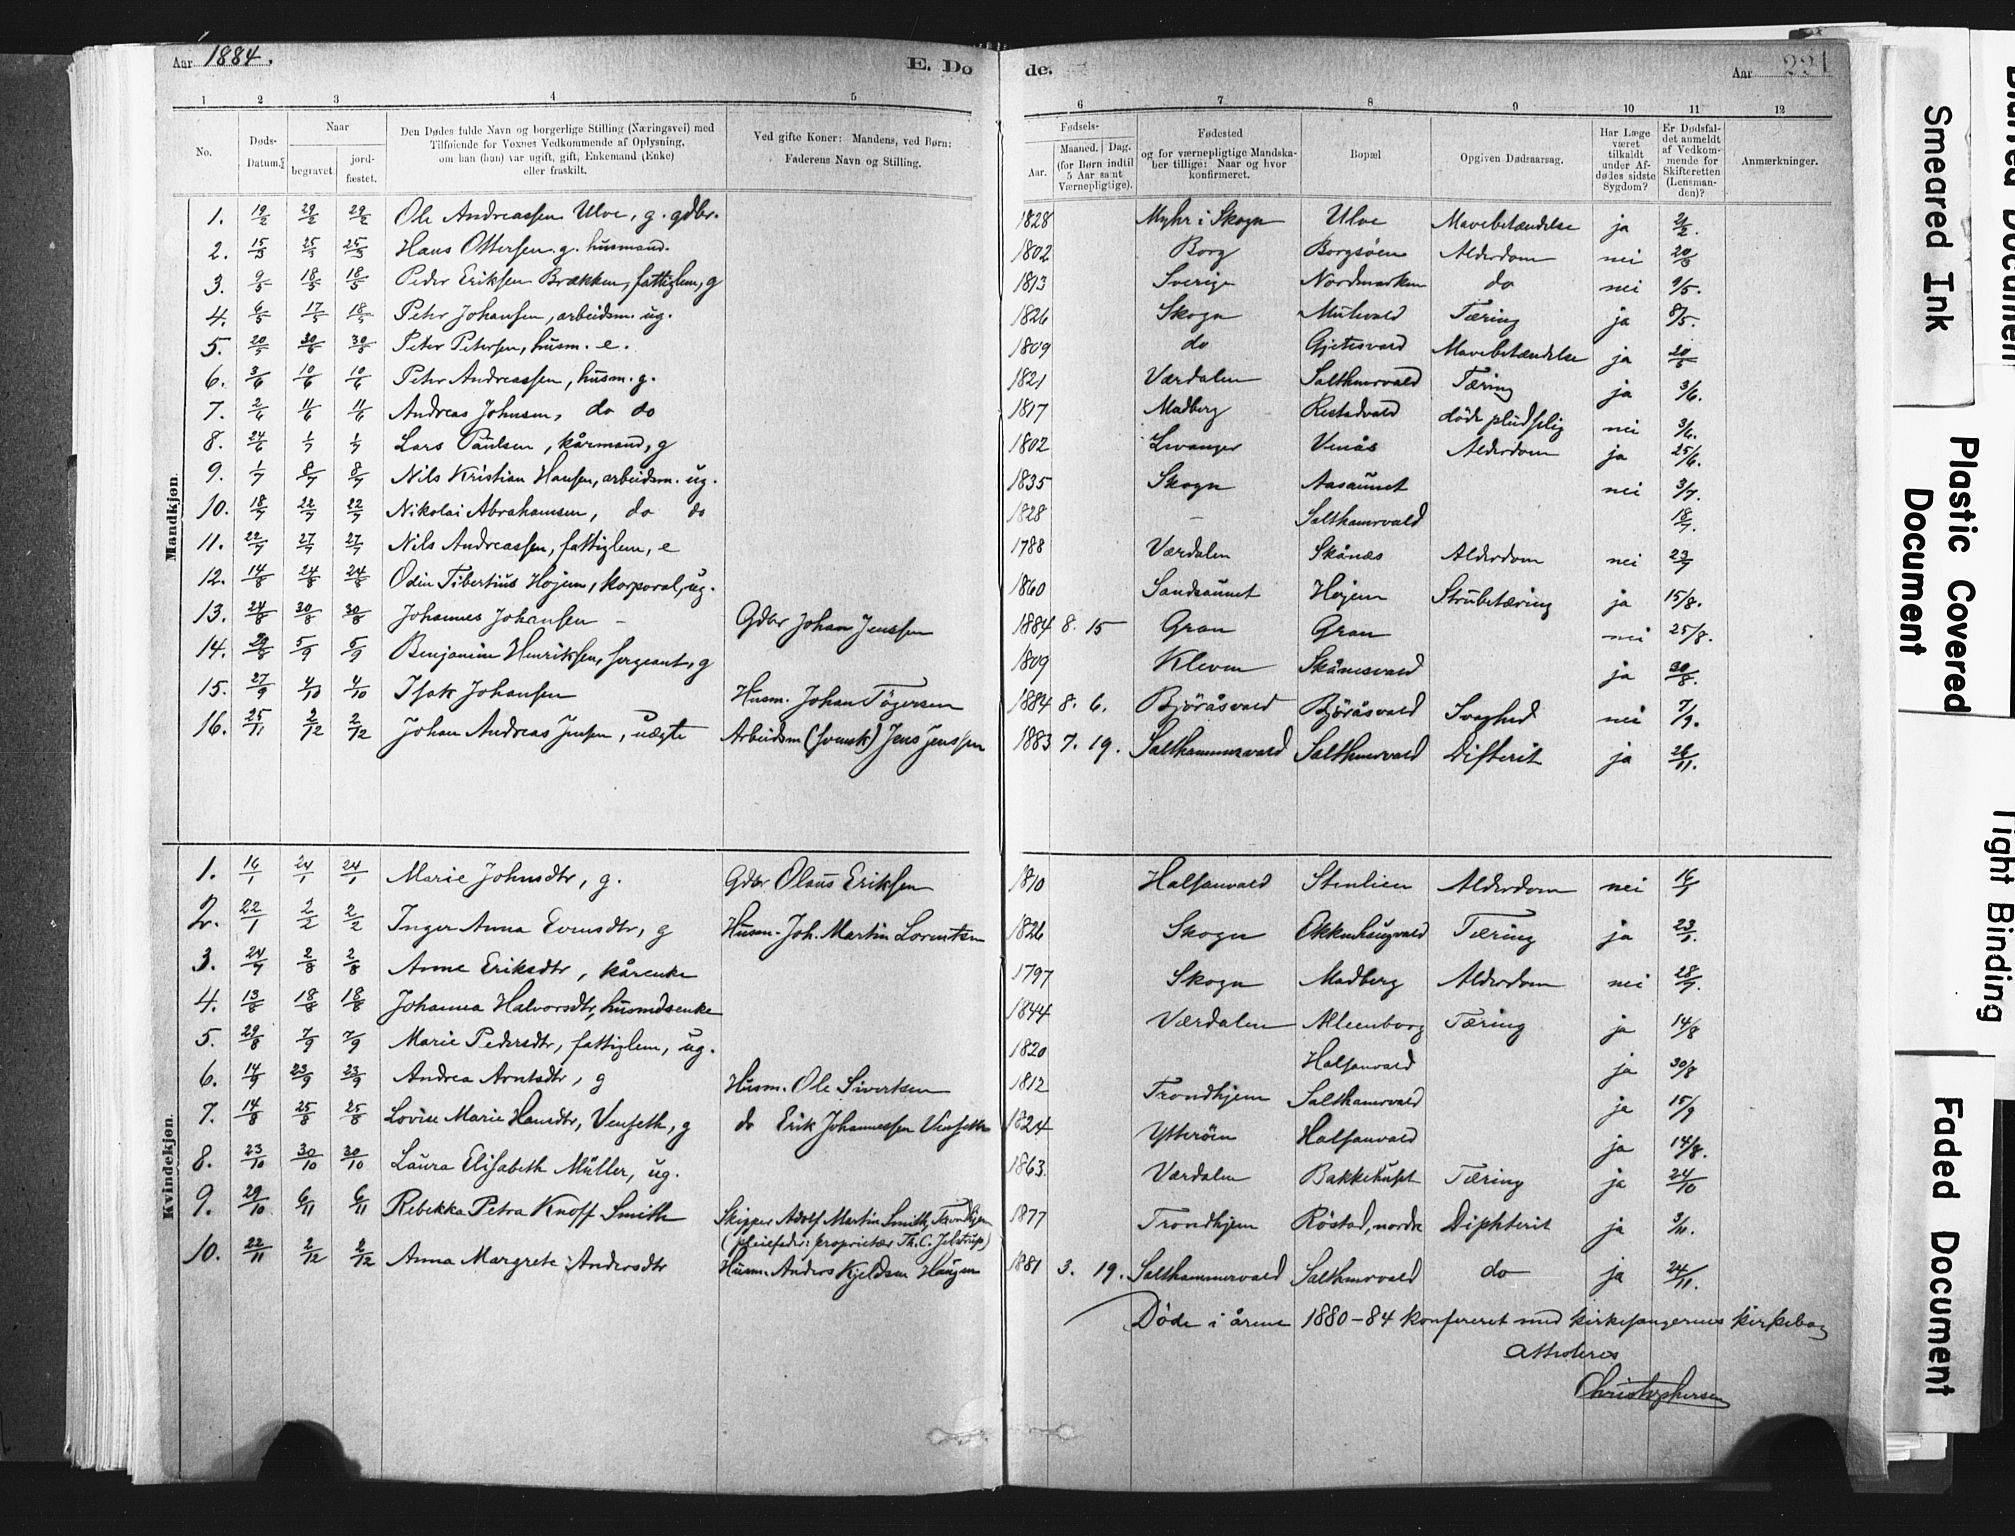 Aar 1884.
E. Do de.
Aar 221
1 2 3 4 5 6 7 8 9 10 11 12
No.
Døds-Datum.
Naar
begravet.
jord-fæstet.
Den Dødes fulde Navn og borgerlige Stilling (Næringsvei) med
Tilføiende for Voxnes Vedkommende af Oplysning,
om han (hun) var ugift, gift, Enkemand (Enke)
eller fraskilt.
Ved gifte Koner: Mandens, ved Børn:
Faderens Navn og Stilling.
Fødsels-
Aar.
Maaned. Dag.
(for Børn indtil
5 Aar samt
Værnepligtige).
Fødested
og for værnepligtige Mandska-
ber tillige: Naar og hvor
konfirmeret.
Bopæl
Opgiven Dødsaarsag.
Har Læge
været
tilkaldt
under Af-
dødes sidste
Sygdom?
Er Dødsfal-
det anmeldt
af Vedkom-
mende for
Skifteretten
(Lensman-
den)?
Anmærkninger.
Mandkjøn.
1. 19/2 29/2 29/2 Ole Andreassen Ulve, g. gdbr. 1828 Myhr i Skogn Ulve Mavebetændelse ja 2/2.
2. 15/3 25/3 25/3 Hans Ottersen g. husmand. 1802 Borg Borgsøen Alderdom nei 20/3
3. 9/5 18/5 18/5 Peder Eriksen Brækken, fattiglem, g 1813 Sverige Nordmarken do nei 9/5.
4. 6/5 17/5 18/5 Peter Johansen, arbeidsm. ug. 1826 Skogn Mulevald Tæring ja 8/5.
5. 20/5 30/5 30/5 Peter Petersen, husm. e. 1809 do Gjetesvald Mavebetændelse ja 20/5
6. 3/6 10/6 10/6 Peter Andreassen, husm. g. 1821 Værdalen Salthmrvald Tæring ja 3/6.
7. 2/6 11/6 11/6 Andreas Johnsen, do do 1817 Madberg Restadvald døde pludselig nei 3/6.
8. 24/6 1/7 1/7 Lars Paulsen, kårmand, g 1802 Levanger Venås Alderdom ja 25/6.
9. 1/7 8/7 8/7 Nils Kristian Hansen, arbeidsm. ug. 1835 Skogn Aasaunet nei 3/7.
10. 18/7 22/7 22/7 Nikolai Abrahamsen, do do 1828 – Salthamrvald 18/7.
11. 22/7 27/7 27/7 Nils Andreassen, fattiglem, e 1788 Værdalen Skånæs Alderdom nei 23/7
12. 14/8 24/8 24/8 Odin Tibertius Højem, korporal, ug. 1860 Sandsaunet Højem Strubetæring ja 15/8.
13. 24/8 30/8 30/8 Johannes Johansen – Gdbr Johan Jenssen 1884 8. 15 Gran Gran nei 25/8.
14. 29/8 5/9 5/9 Benjamin Henriksen, sergeant, g 1809 Kleven Skånesvald ja 30/8.
15. 27/9 4/10 4/10 Isak Johansen Husm. Johan Tøgersen 1884 8. 6. Björåsvald Björåsvald Svaghed nei 7/9.
16. 25/11 2/12 2/12 Johan Andreas Jensen, uægte Arbeidsm (svensk) Jens Jenssen 1883 7. 19. Salthammervald Salthmrvald Difterit ja 26/11.
Kvindekjøn.
1. 16/1 24/1 24/1 Marie Johnsdtr, g. Gdbr Olaus Eriksen 1810 Halsanvald Stenlien Alderdom nei 16/1
2. 22/1 2/2 2/2 Inger Anna Evensdtr, g Husm. Joh. Martin Lorentsen 1826 Skogn Okkenhaugvald Tæring ja 23/1.
3. 24/7 2/8 2/8 Anne Eriksdtr, kårenke 1797 Skogn Madberg Alderdom nei 28/7.
4. 13/8 18/8 18/8 Johanna Halvorsdtr, husmdsenke 1844 Værdalen Alleenborg Tæring ja 14/8
5. 29/8 7/9 7/9 Marie Pedersdtr, fattiglem, ug. 1820 Halsanvald ja 30/8
6. 14/9 23/9 23/9 Andrea Arntsdtr, g Husm. Ole Sivertsen 1812 Trondhjem Salthamrvald ja 15/9
7. 14/8 25/8 25/8 Lovise Marie Hansdtr, Venseth, g do Erik Johannessen Venseth 1824 Ytterøen Halsanvald ja 14/8.
8. 23/10 30/10 30/10 Laura Elisabeth Müller, ug. 1863 Værdalen Bakkehuset Tæring ja 24/10
9. 29/10 6/11 6/11 Rebekka Petra Knoff Smith Skipper Adolf Martin Smith, Trondhjem 1877 Trondhjem Röstad, nordre Diphterit ja 3/11.
(pleiefader: proprietær Th. C. Jelstrup)
10. 22/11 2/12 2/12 Anna Margrete Andersdtr Husm. Anders Kjeldsen Haugen 1881 3. 19. Salthammervald Salthmrvald do ja 24/11.
Døde i årene 1880-84 konfereret med kirkesangerens kirkebog
Attesteres
Christophersen
Blurred Document
Smeared Ink
Plastic Covered
Document
Tight Binding
Faded Document